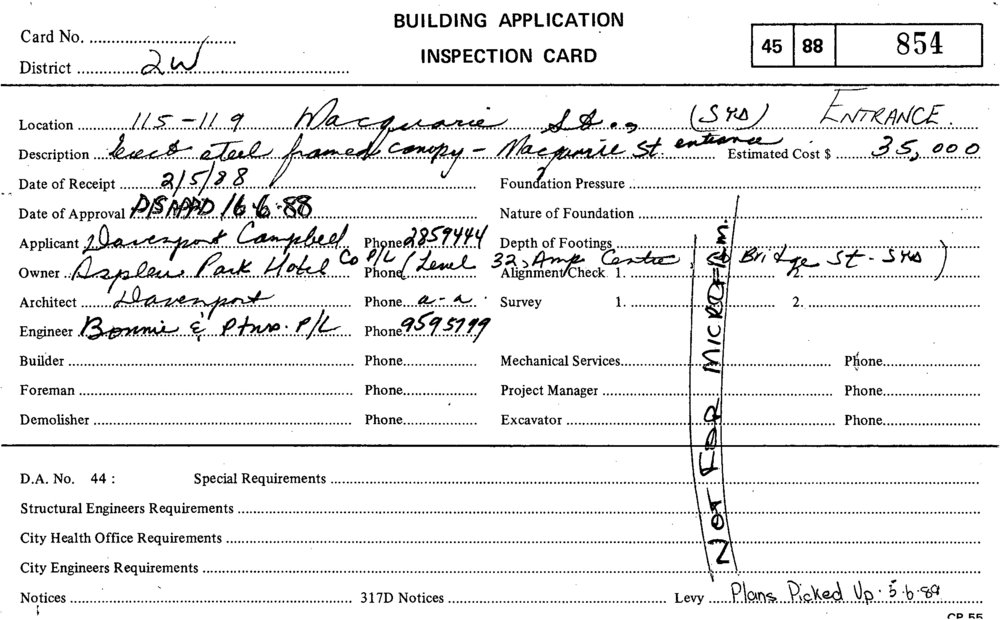 BUILDING APPLICATION
INSPECTION CARD
Card No.
District 2W
45 88 854
Location 115-119 Macquarie St., (SYD) ENTRANCE.
Description Erect steel framed canopy - Macquarie St. entrance Estimated Cost $ 35,000
Date of Receipt 2/5/88 Foundation Pressure
Date of Approval DISAPPD 16.6.88 Nature of Foundation
Applicant Davenport Campbell Phone 2859444 Depth of Footings
Owner Park Hotel Co P/L Phone (Level 32, Amp Centre, 50 Bridge St - SYD) Alignment/Check 1. 2.
Architect Davenport Phone a-a Survey 1. 2.
Engineer Bonnie & Ptnrs. P/L Phone 9595799
Builder Phone Mechanical Services Phone
Foreman Phone Project Manager Phone
Demolisher Phone Excavator Phone
NOT FOR MICROFILM.
D.A. No. 44 : Special Requirements
Structural Engineers Requirements
City Health Office Requirements
City Engineers Requirements
Notices 317D Notices Levy Plans Picked Up. 5.6.89
CP 55